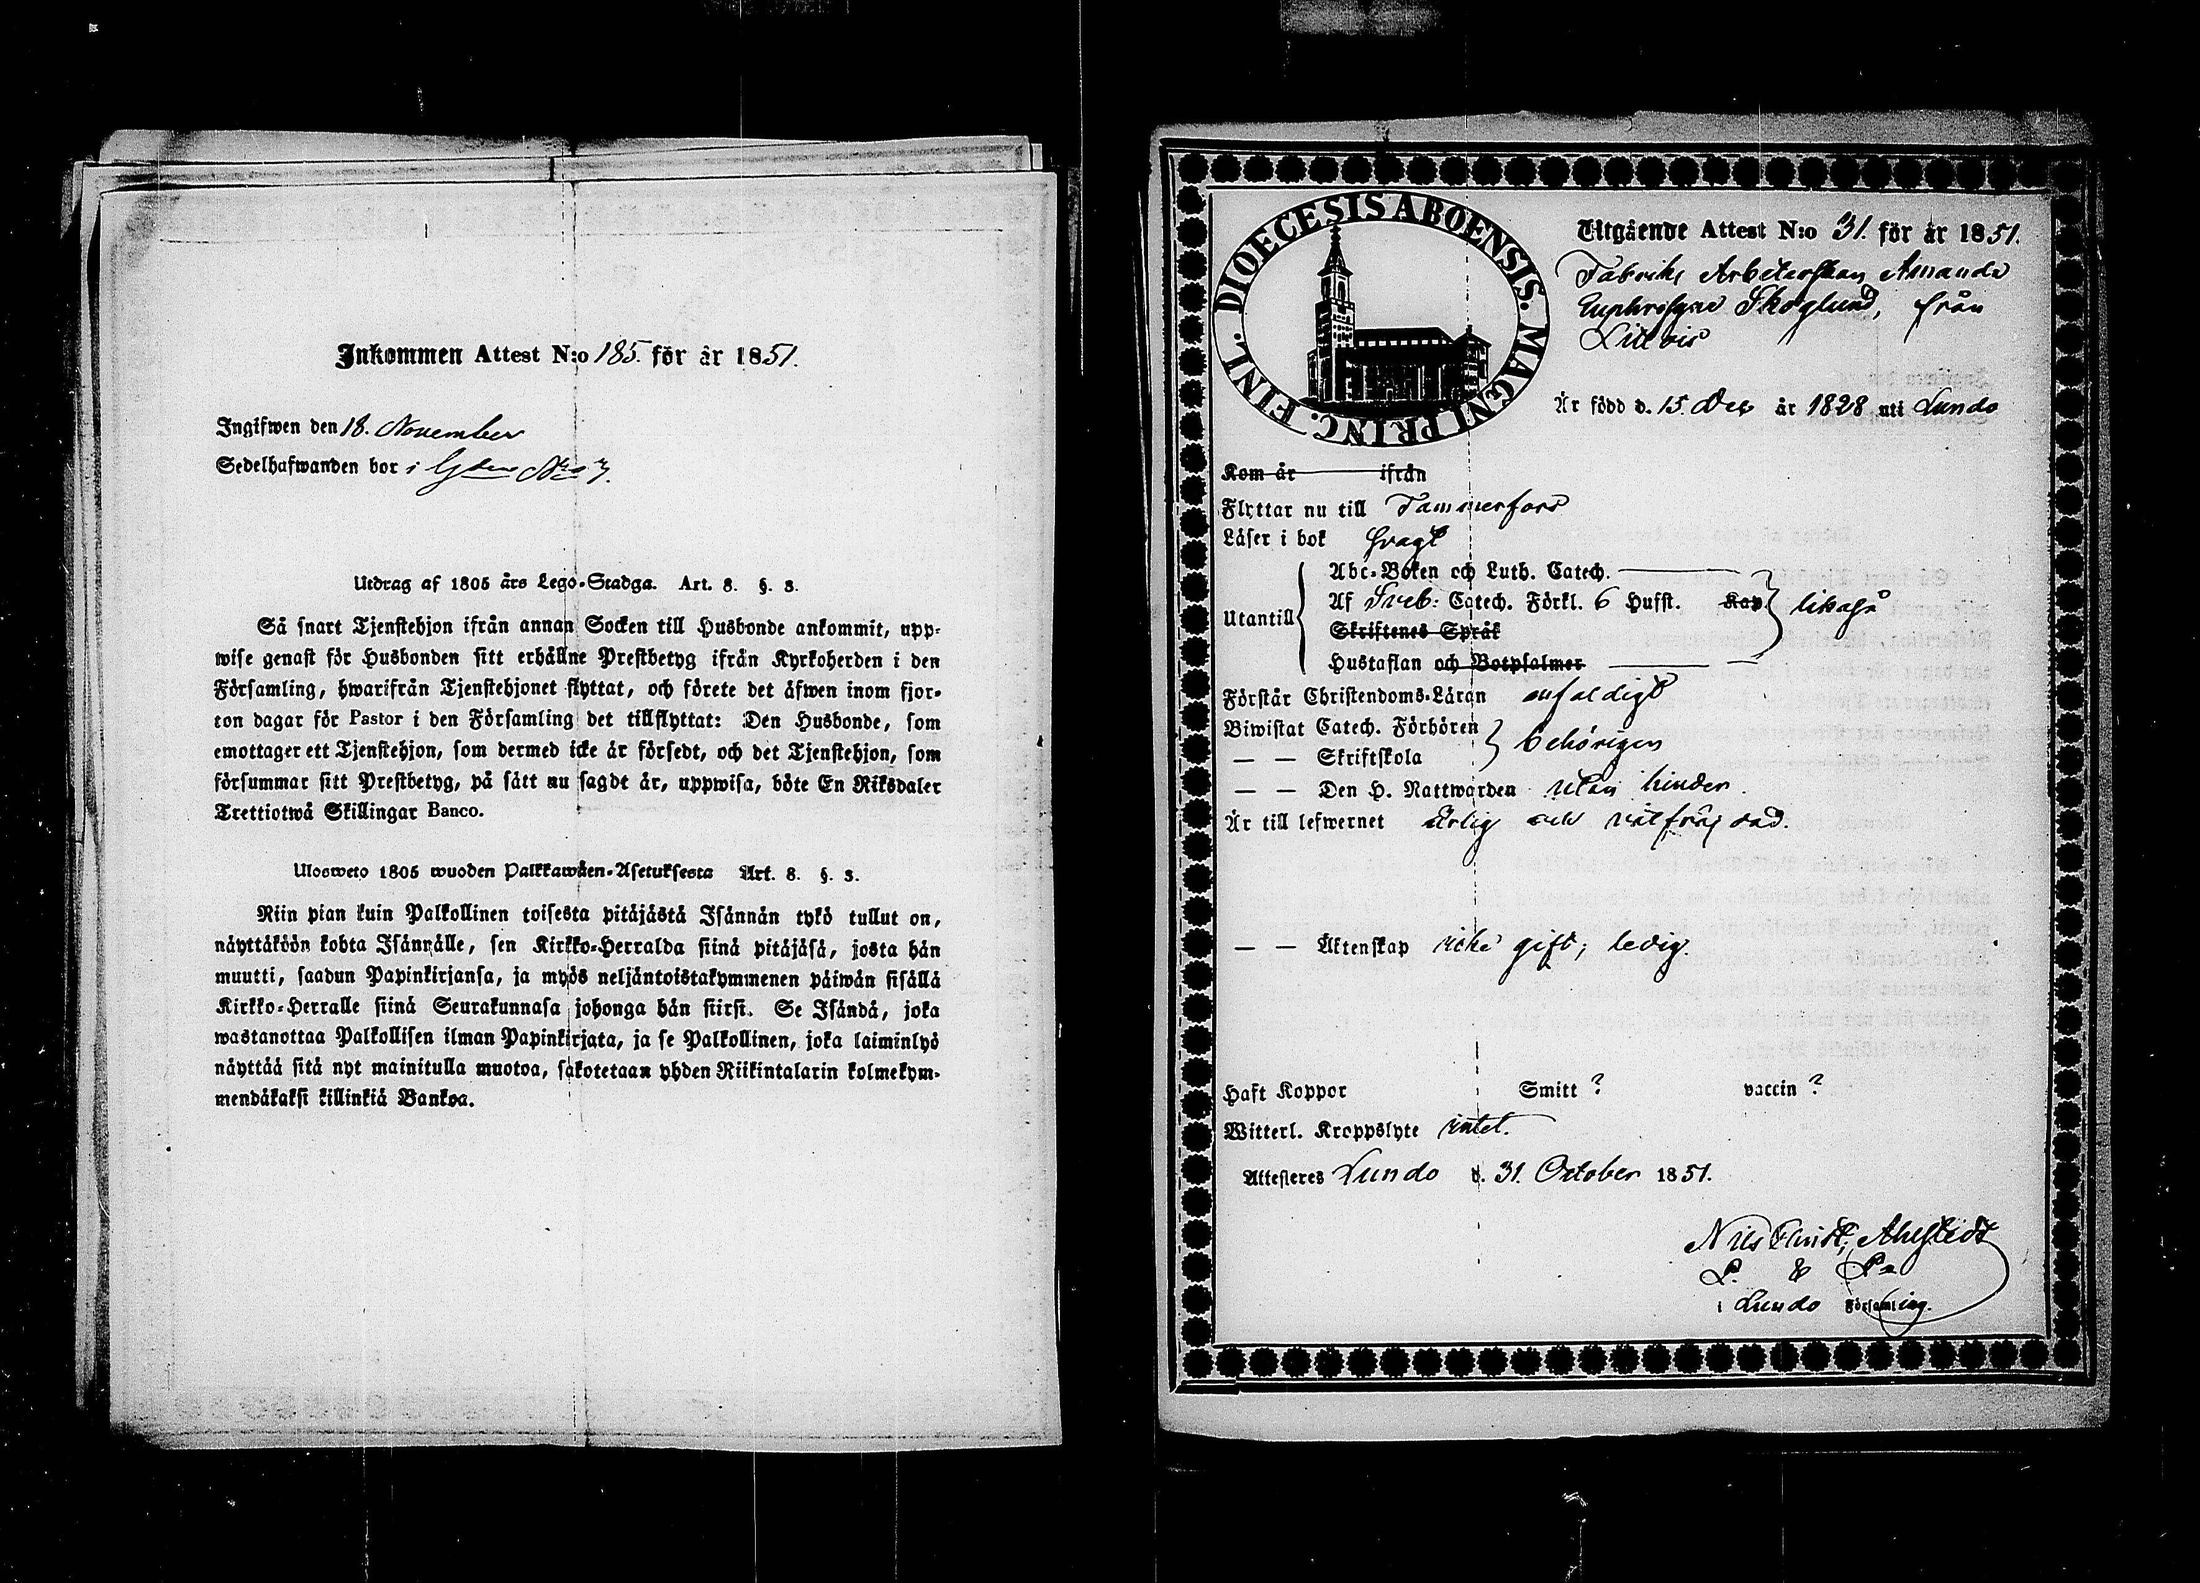 Inkommen Attest N:o 185. för år 1851.
Ingifwen den 18. November
Sedelhafwanden bor i Gden No 7.
Utdrag af 1805 års Lego-Stadga. Art. 8. §. 3.
Så snart Tjenstehjon ifrån annan Socken till Husbonde ankommit, upp-
wise genast för Husbonden sitt erhållne Prestbetyg ifrån Kyrkoherden i den
Församling, hwarifrån Tjenstehjonet flyttat, och förete det äfwen inom fjor-
ton dagar för Pastor i den Församling det tillflyttat: Den Husbonde, som
emottager ett Tjenstehjon, som dermed icke är försedt, och det Tjenstehjon, som
försummar sitt Prestbetyg, på sätt nu sagdt är, uppwisa, böte En Riksdaler
Trettiotwå Skillingar Banco.
Ulosweto 1805 wuoden Palkkawäen-Asetuksesta Art. 8. §. 3.
Niin pian kuin Palkollinen toisesta pitäjästä Isännän tykö tullut on,
näyttäköön kohta Isännälle, sen Kirkko-Herralda siinä pitäjäsä, josta hän
muutti, saadun Papinkirjansa, ja myös neljäntoistakymmenen päiwän sisällä
Kirkko-Herralle siinä Seurakunnasa johonga hän siirsi. Se Isändä, joka
wastanottaa Palkollisen ilman Papinkirjata, ja se Palkollinen, joka laiminlyö
näyttää sitä nyt mainitulla muotoa, sakotetaan yhden Riikintalarin kolmekym-
mendäkaksi killinkiä Bankoa.
DIOECESIS ABOENSIS. MAGNI PRINC. FINL.
Utgående Attest N:o 31. för år 1851.
Fabriks Arbeterskan Amanda
Euphrosyne Skoglund, från
Littois
Är född d. 15. Dec år 1828 uti Lundo
Kom år ifrån
Flyttar nu till Tammerfors
Läser i bok svagt
Abc-Boken och Luth. Catech.
Utantill Af Sveb: Catech. Förkl. 6 Hufst. Kap likaså
Skriftenes Språk
Hustaflan och Botpsalmer
Förstår Christendoms-Läran enfaldigt
Biwistat Catech. Förhören behörigen
— — Skriftskola
— — Den H. Nattwarden utan hinder.
Är till lefwernet ärlig och välfräjdad.
— — Äktenskap icke gift; ledig.
Haft Koppor Smitt ? vaccin ?
Witterl. Kroppslyte intet.
Attesteres Lundo d. 31. October 1851.
Nils Christ. Ahlstedt
i Lundo Församling.